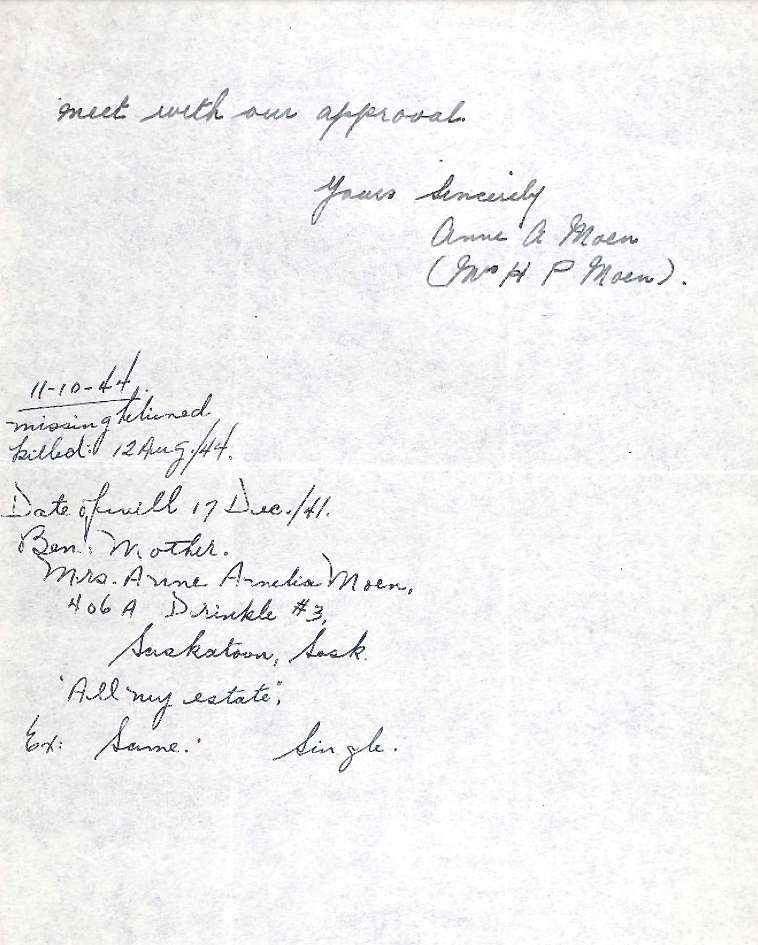 meet with our approval.
Yours Sincerely
Anne A Moen
(Mrs H P Moen).
11-10-44.
missing believed
killed: 12 Aug./44.
Date of will 17 Dec./41.
Ben: Mother.
Mrs. Anne Amelia Moen,
406 A Drinkle #3,
Saskatoon, Sask.
"All my estate",
Ex: Same. Single.